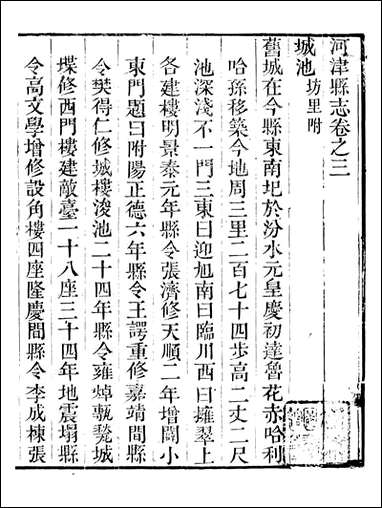 河津縣志卷之三
城池 坊里附
舊城在今縣東南圮於汾水元皇慶初達魯花赤哈利
哈孫移築今地周三里二百七十四步高二丈二尺
池深淺不一門三東曰迎旭南曰臨川西曰擁翠上
各建樓明景泰元年縣令張濟修天順二年增闢小
東門題曰附陽正德六年縣令王諤重修嘉靖間縣
令樊得仁修城樓浚池二十四年縣令雍焯甎甃城
堞修西門樓建敵臺一十八座三十四年地震塌縣
令高文學增修設角樓四座隆慶間縣令李成棟張